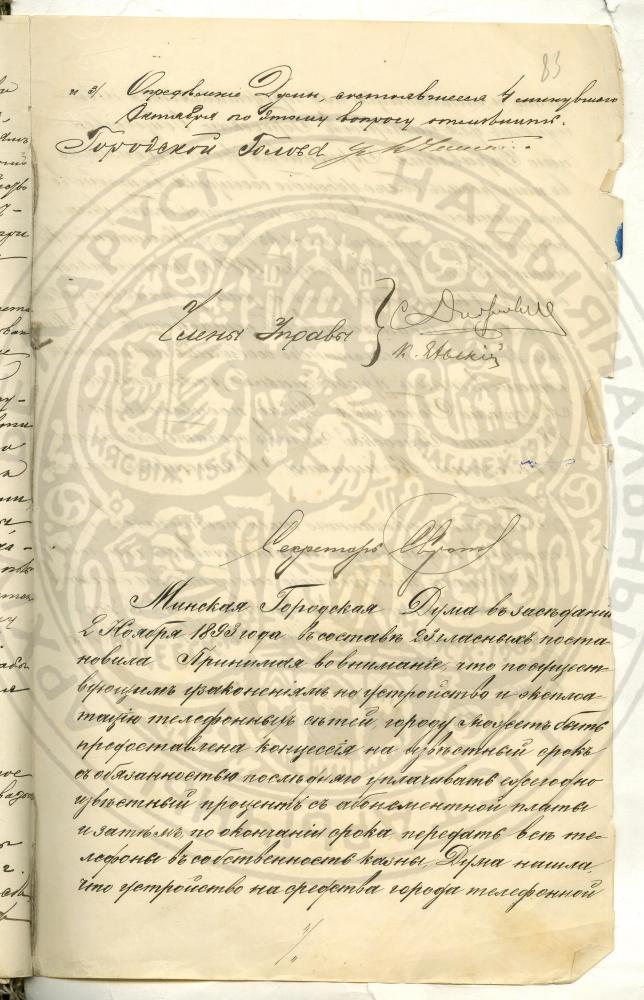 83
и 3/ Определеніе Думы, состоявшееся 4 минувшаго
Октября по этому вопросу отмѣнить.
Городской Голова
Члены Управы
К. Явскій
Секретарь
Минская Городская Дума въ засѣданіи
2 Ноября 1893 года въ составѣ 23 гласныхъ поста-
новила Принимая во вниманіе, что по сущест-
вующимъ узаконеніямъ на устройство и эксплоа-
тацію телефонныхъ сѣтей, городу можетъ быть
предоставлена концессія на извѣстный срокъ
съ обязанностью послѣдняго уплачивать ежегодно
извѣстный процентъ съ абонементной платы
и затѣмъ, по окончаніи срока передать всѣ те-
лефоны въ собственность казны Дума нашла,
что устройство на средства города телефонной